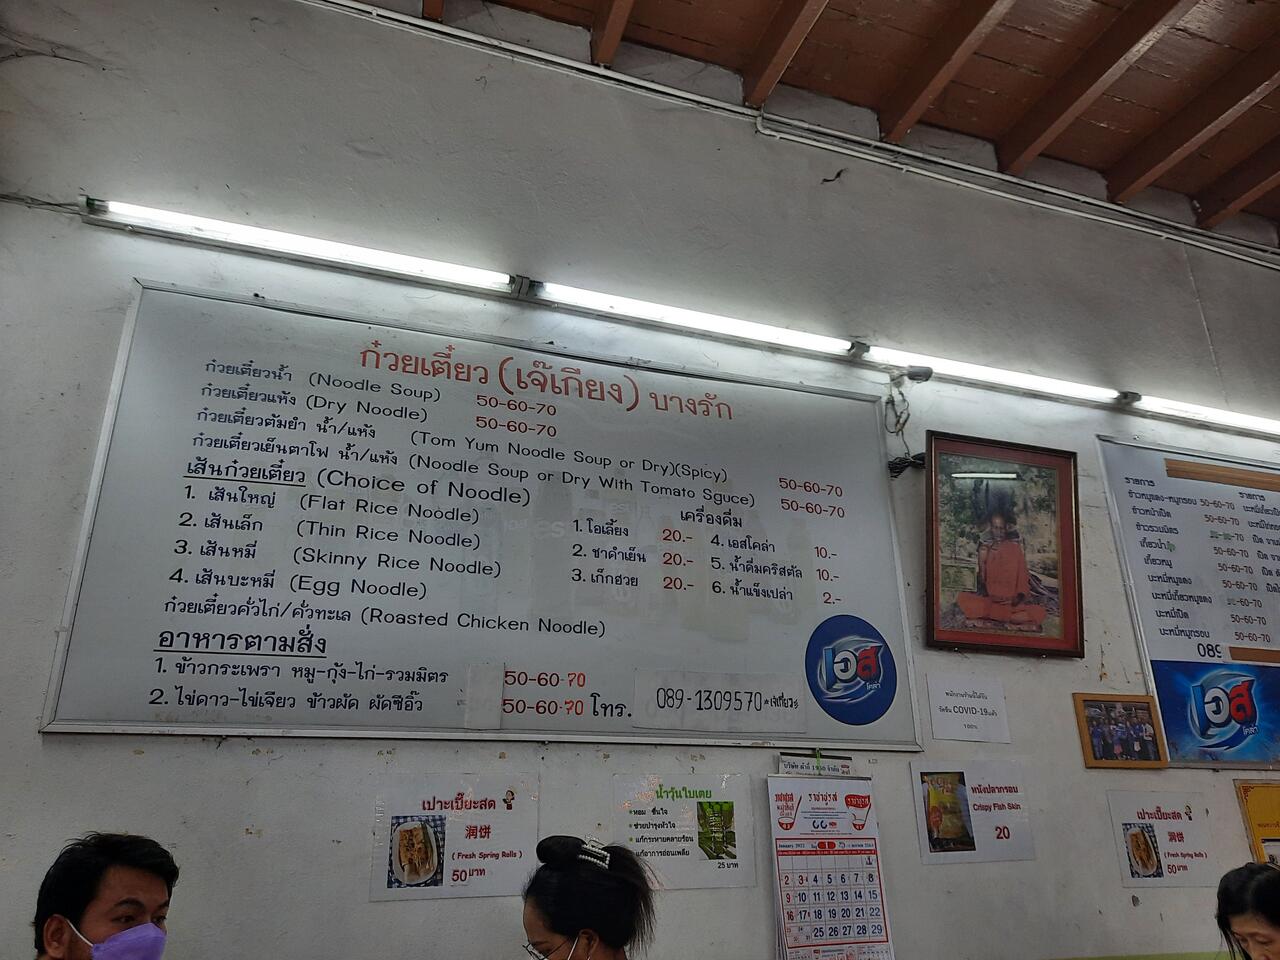 ก๋วยเตี๋ยว (เจ๊เกียง) บางรัก
ก๋วยเตี๋ยวน้ำ (Noodle Soup) 50-60-70
ก๋วยเตี๋ยวแห้ง (Dry Noodle) 50-60-70
ก๋วยเตี๋ยวต้มยำ น้ำ/แห้ง (Tom Yum Noodle Soup or Dry)(Spicy) 50-60-70
ก๋วยเตี๋ยวเย็นตาโฟ น้ำ/แห้ง (Noodle Soup or Dry With Tomato Sguce) 50-60-70
เส้นก๋วยเตี๋ยว (Choice of Noodle)
1. เส้นใหญ่ (Flat Rice Noodle)
2. เส้นเล็ก (Thin Rice Noodle)
3. เส้นหมี่ (Skinny Rice Noodle)
4. เส้นบะหมี่ (Egg Noodle)
ก๋วยเตี๋ยวคั่วไก่/คั่วทะเล (Roasted Chicken Noodle)
เครื่องดื่ม
1. โอเลี้ยง 20.- 4. เอสโคล่า 10.-
2. ชาดำเย็น 20.- 5. น้ำดื่มคริสตัล 10.-
3. เก็กฮวย 20.- 6. น้ำแข็งเปล่า 2.-
อาหารตามสั่ง
1. ข้าวกระเพรา หมู-กุ้ง-ไก่-รวมมิตร 50-60-70
2. ไข่ดาว-ไข่เจียว ข้าวผัด ผัดซีอิ๊ว 50-60-70 โทร. 089-1309570
เอส
โคล่า
รายการ รายการ
ข้าวหมูแดง-หมูกรอบ 50-60-70
ข้าวหน้าเป็ด 50-60-70
ข้าวรวมมิตร
เกี๊ยวน้ำ 50-60-70
เกี๊ยวหมู 50-60-70
บะหมี่หมูแดง 50-60-70
บะหมี่เกี๊ยวหมูแดง
บะหมี่เป็ด 50-60-70
บะหมี่หมูกรอบ 50-60-70
089
เอส
โคล่า
พนักงานร้านนี้ได้รับ
วัคซีน COVID-19แล้ว
100%
เปาะเปี๊ยะสด
润饼
( Fresh Spring Rolls )
50 บาท
น้ำวุ้นใบเตย
*หอม ชื่นใจ
*ช่วยบำรุงหัวใจ
*แก้กระหายคลายร้อน
*แก้อาการอ่อนเพลีย
25 บาท
ราชาชูรส
January 2022
1
2 3 4 5 6 7 8
9 10 11 12 13 14 15
16 17 18 19 20 21 22
23 24 25 26 27 28 29
หนังปลากรอบ
Crispy Fish Skin
20
เปาะเปี๊ยะสด
润饼
( Fresh Spring Rolls )
50 บาท